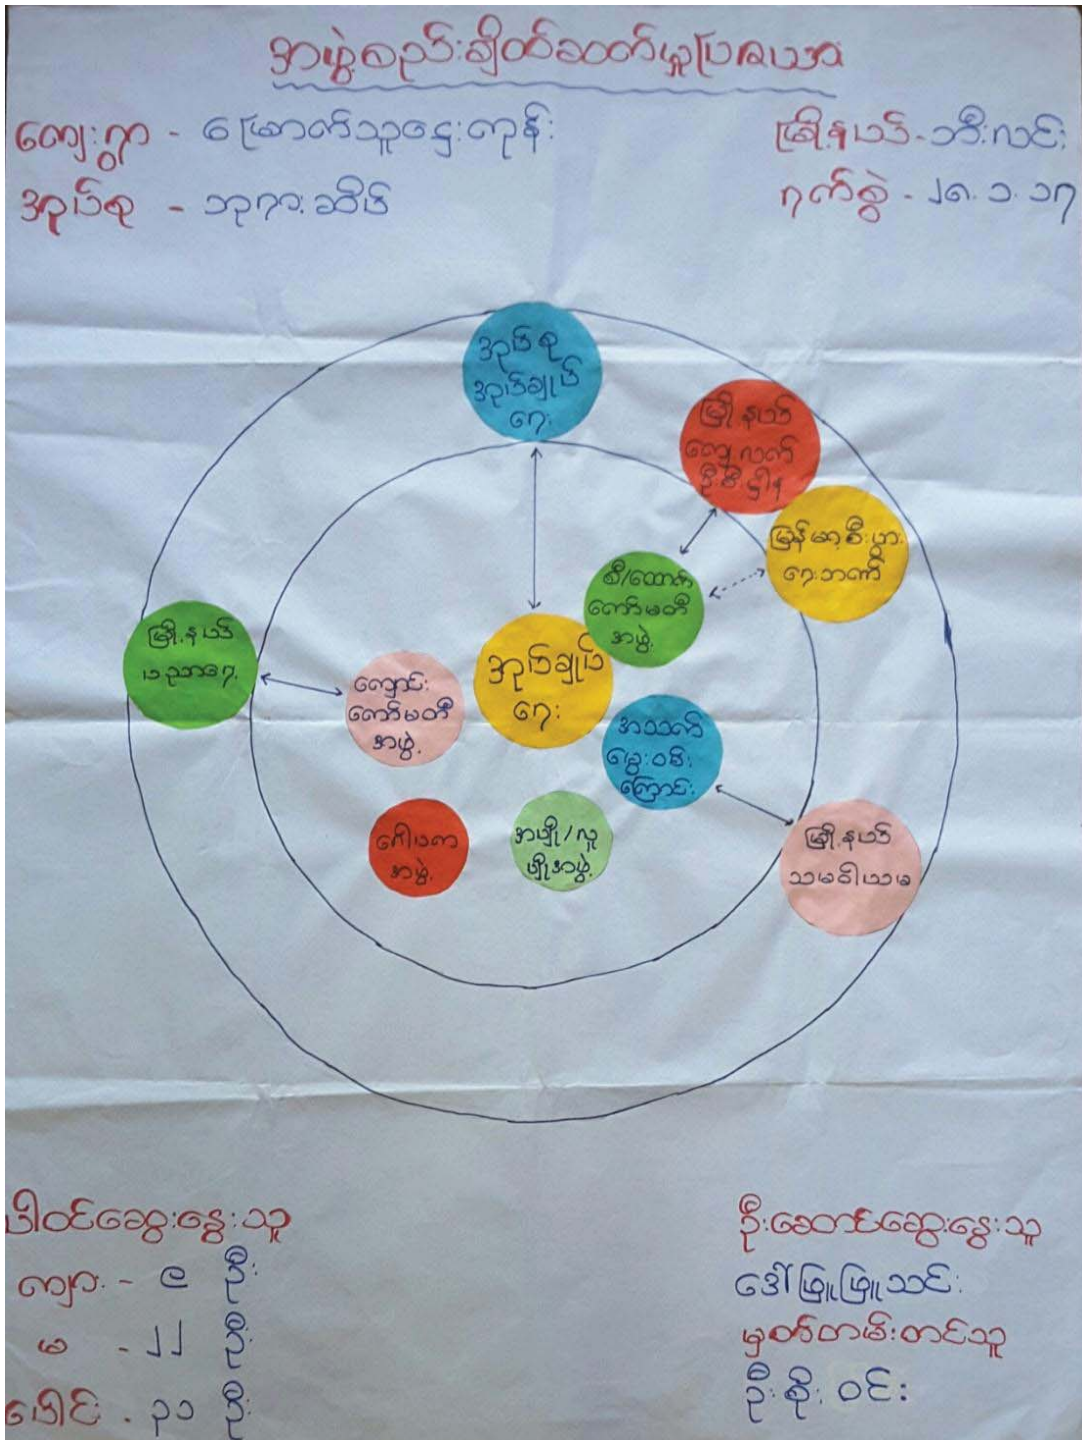 အဖွဲ့စည်းချိတ်ဆက်မှုပြဇယား
ကျေးရွာ - မြောက်သူဌေးကုန်း
မြို့နယ် - ဘီးလင်း
အုပ်စု - ဘုရားဆိပ်
ရက်စွဲ - ၂၈.၁.၁၇
အုပ်စု
အုပ်ချုပ်
ရေး
မြို့နယ်
ကျေးလက်
ဦးစီးဌာန
မြန်မာ့စီးပွား
ရေးဘဏ်
စီ/ထောက်
ကော်မတီ
အဖွဲ့
မြို့နယ်
ပညာရေး
ကျောင်း
ကော်မတီ
အဖွဲ့
အုပ်ချုပ်
ရေး
အသက်
မွေးဝမ်း
ကြောင်း
ဂေါပက
အဖွဲ့
အပျို/လူ
ပျိုအဖွဲ့
မြို့နယ်
သမဝါယမ
ပါဝင်ဆွေးနွေးသူ
ကျား - ၉ ဦး
မ - ၂၂ ဦး
ပေါင်း - ၃၁ ဦး
ဦးဆောင်ဆွေးနွေးသူ
ဒေါ်ဖြူဖြူသင်း
မှတ်တမ်းတင်သူ
ဦးစိုးဝင်း